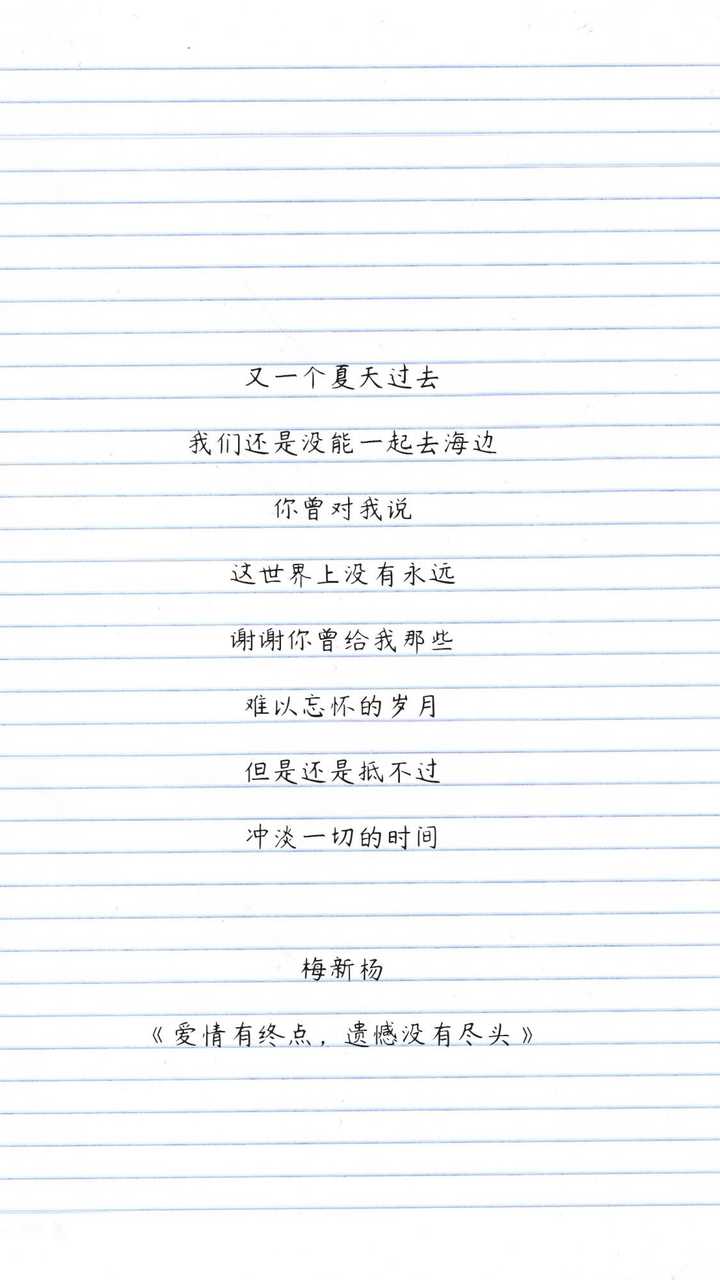 又一个夏天过去
我们还是没能一起去海边
你曾对我说
这世界上没有永远
谢谢你曾给我那些
难以忘怀的岁月
但是还是抵不过
冲淡一切的时间
梅新杨
《爱情有终点，遗憾没有尽头》